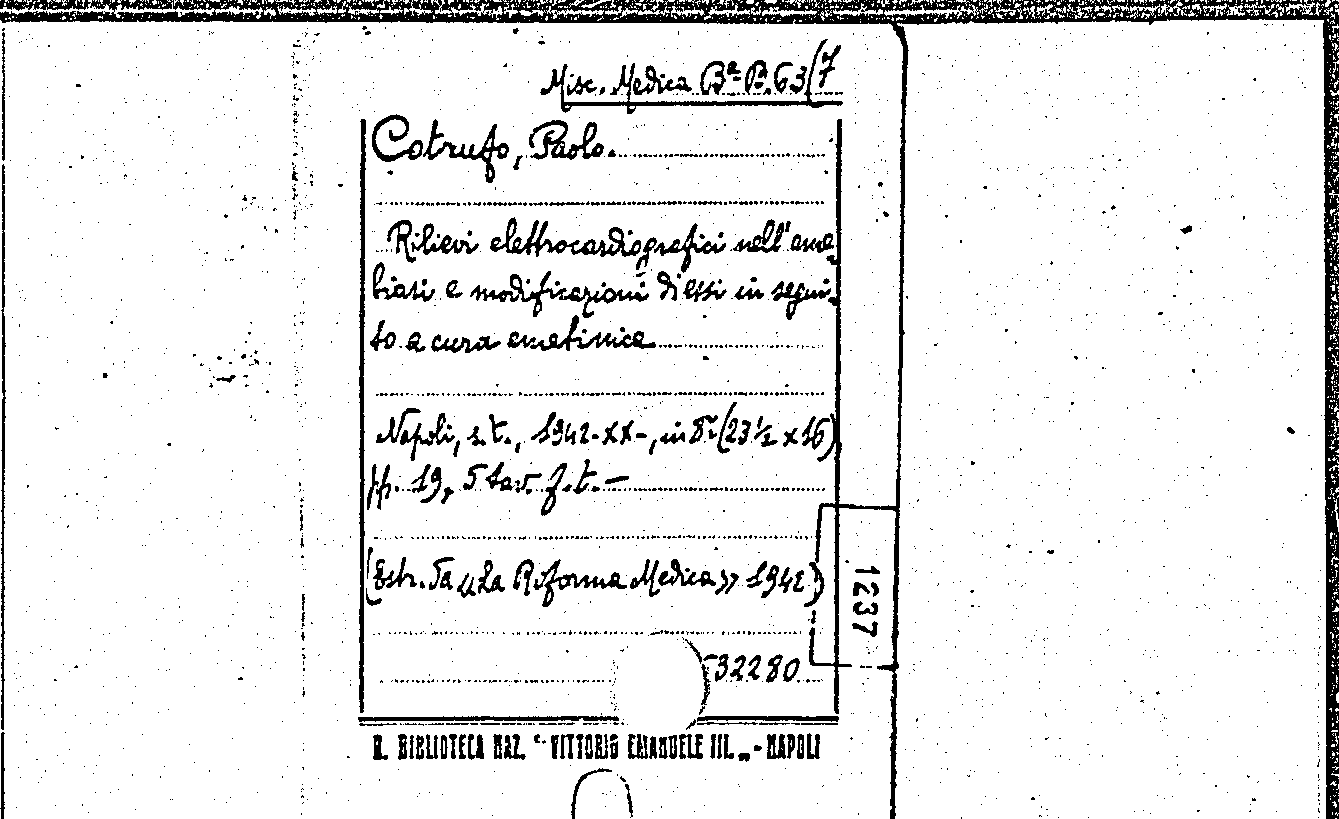 Misc. Medica Bª B. 63(7
Cotrufo, Paolo.
Rilievi elettrocardiografici nell'ame-
biasi e modificazioni di essi in segui-
to a cura emetinica
Napoli, s.t., 1942-XX-, in 8° (23 ½ x 16)
pp. 19, 5 tav. f.t. —
(Estr. da «La Riforma Medica» 1942)
532280
1237
R. BIBLIOTECA NAZ. “VITTORIO EMANUELE III.„ - NAPOLI